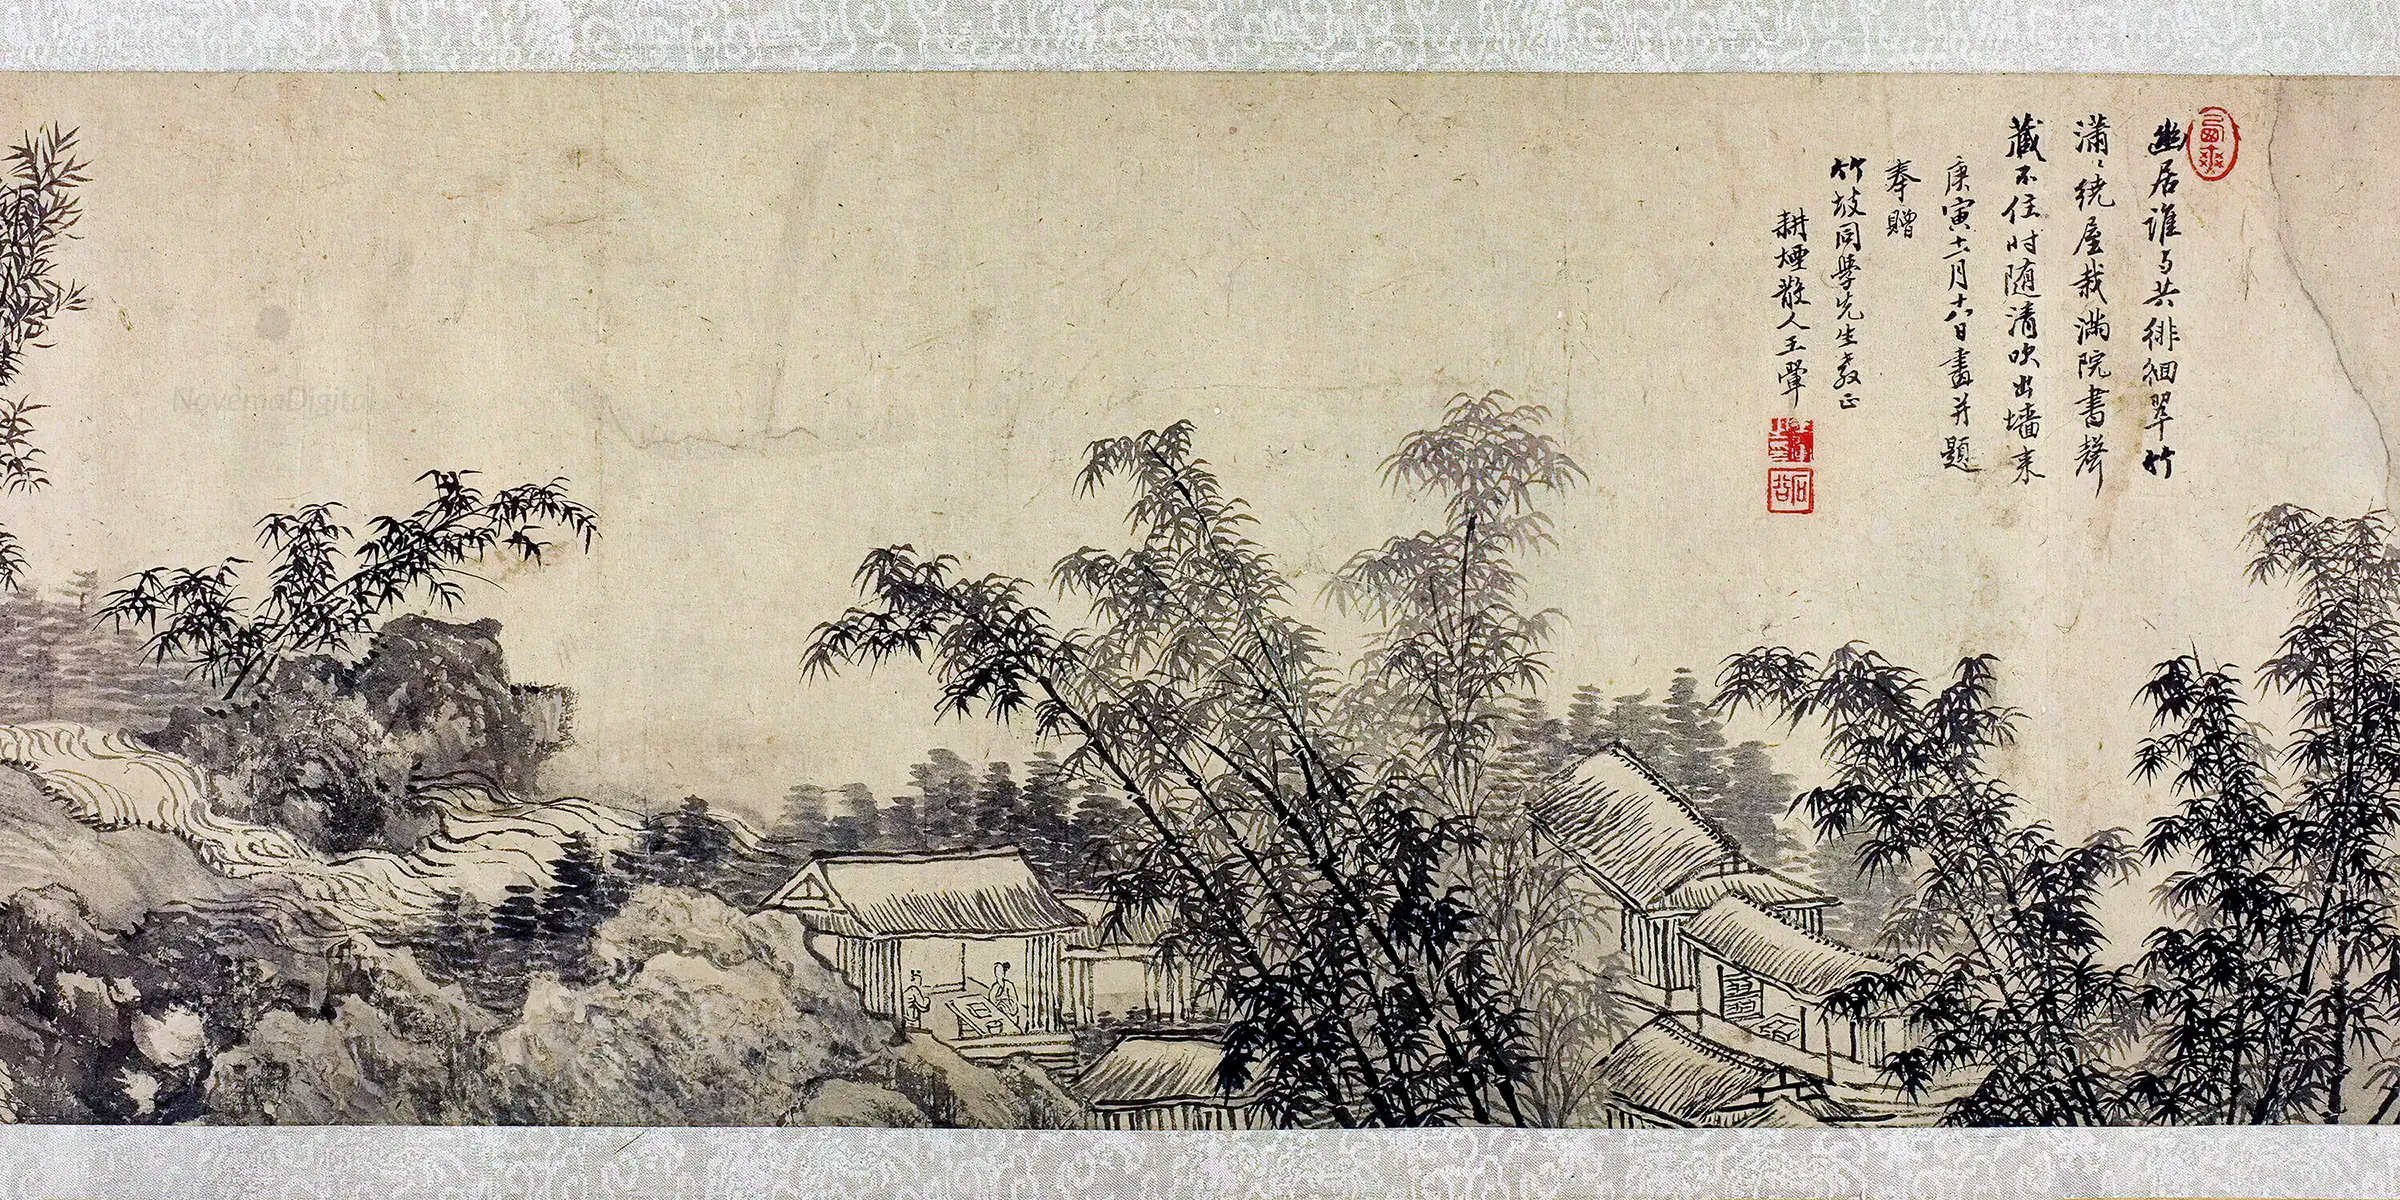 幽居谁与共徘徊翠竹
潇〻绕屋栽满院書聲
藏不住时随清吹出墙来
庚寅十一月十六日畫并題
奉贈
竹坡同學先生教正
耕煙散人王翬
石谷
NovemaDigital